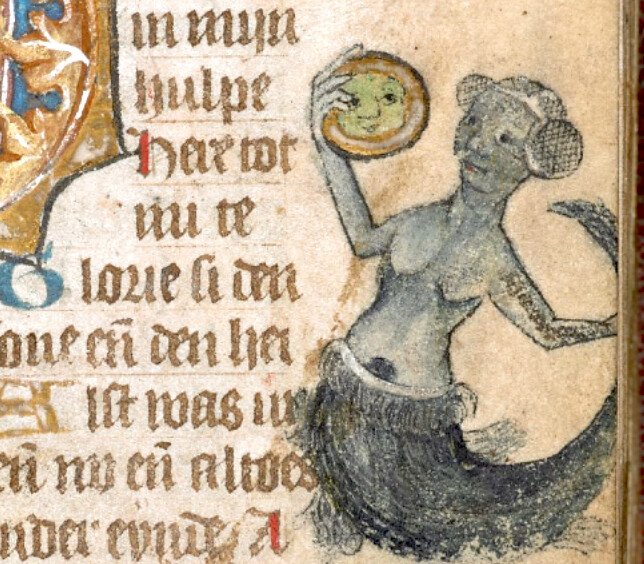 in mijn
hulpe
Here tot
mi te
Glorie si den
sone en̄ den hei
Alst was in
en̄ nv en̄ altoes
onder eynde A